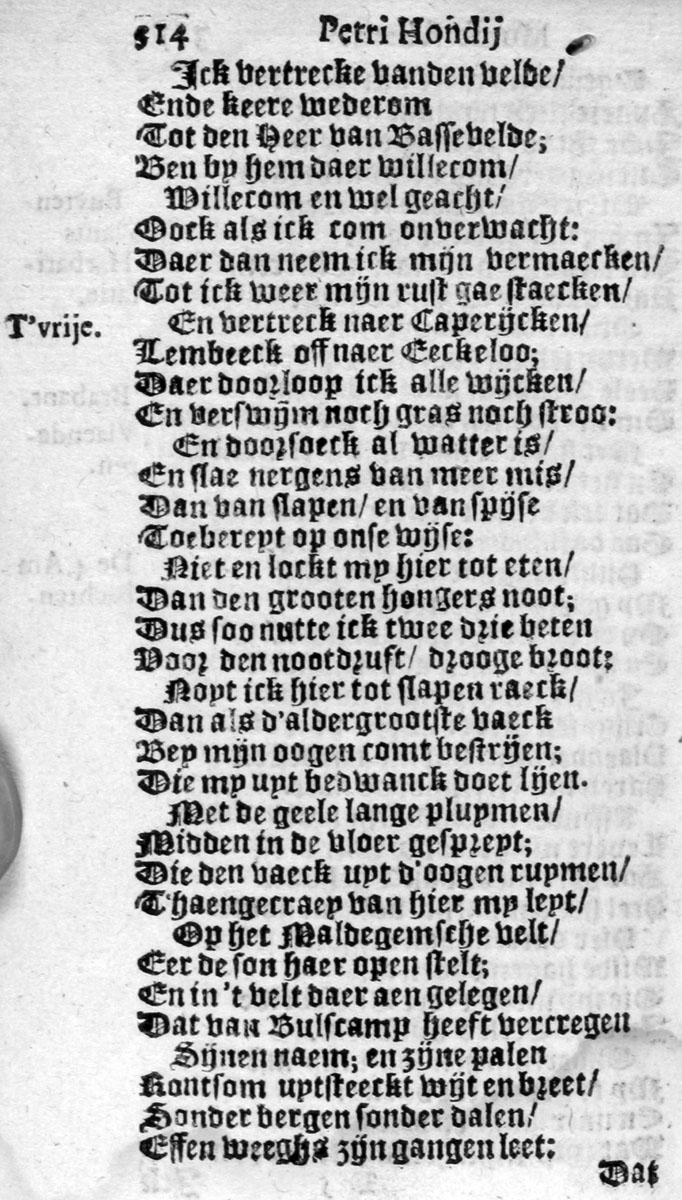 514 Petri Hondij
Ick vertrecke vanden velde/
Ende keere wederom
Tot den Heer van Bassevelde;
Ben by hem daer willecom/
Willecom en wel geacht/
Oock als ick com onverwacht:
Daer dan neem ick mijn vermaecken/
Tot ick weer mijn rust gae staecken/
T'vrije. En vertreck naer Caperijcken/
Lembeeck off naer Eeckeloo;
Daer doorloop ick alle wijcken/
En verswijm noch gras noch stroo:
En doorsoeck al watter is/
En slae nergens van meer mis/
Dan van slapen/ en van spijse
Toebereyt op onse wijse:
Niet en lockt my hier tot eten/
Dan den grooten hongers noot;
Dus soo nutte ick twee drie beten
Voor den nootdruft/ drooge broot;
Noyt ick hier tot slapen raeck/
Dan als d'aldergrootste vaeck
Bey mijn oogen comt bestrijen;
Die my uyt bedwanck doet lijen.
Met de geele lange pluymen/
Midden in de vloer gespreyt;
Die den vaeck uyt d'oogen ruymen/
T'haengecraey van hier my leyt/
Op het Maldegemsche velt/
Eer de son haer open stelt;
En in't velt daer aen gelegen/
Dat van Bulscamp heeft vercregen
Sijnen naem; en zijne palen
Rontsom uytsteeckt wijt en breet/
Sonder bergen sonder dalen/
Effen weeghs zijn gangen leet:
Dat